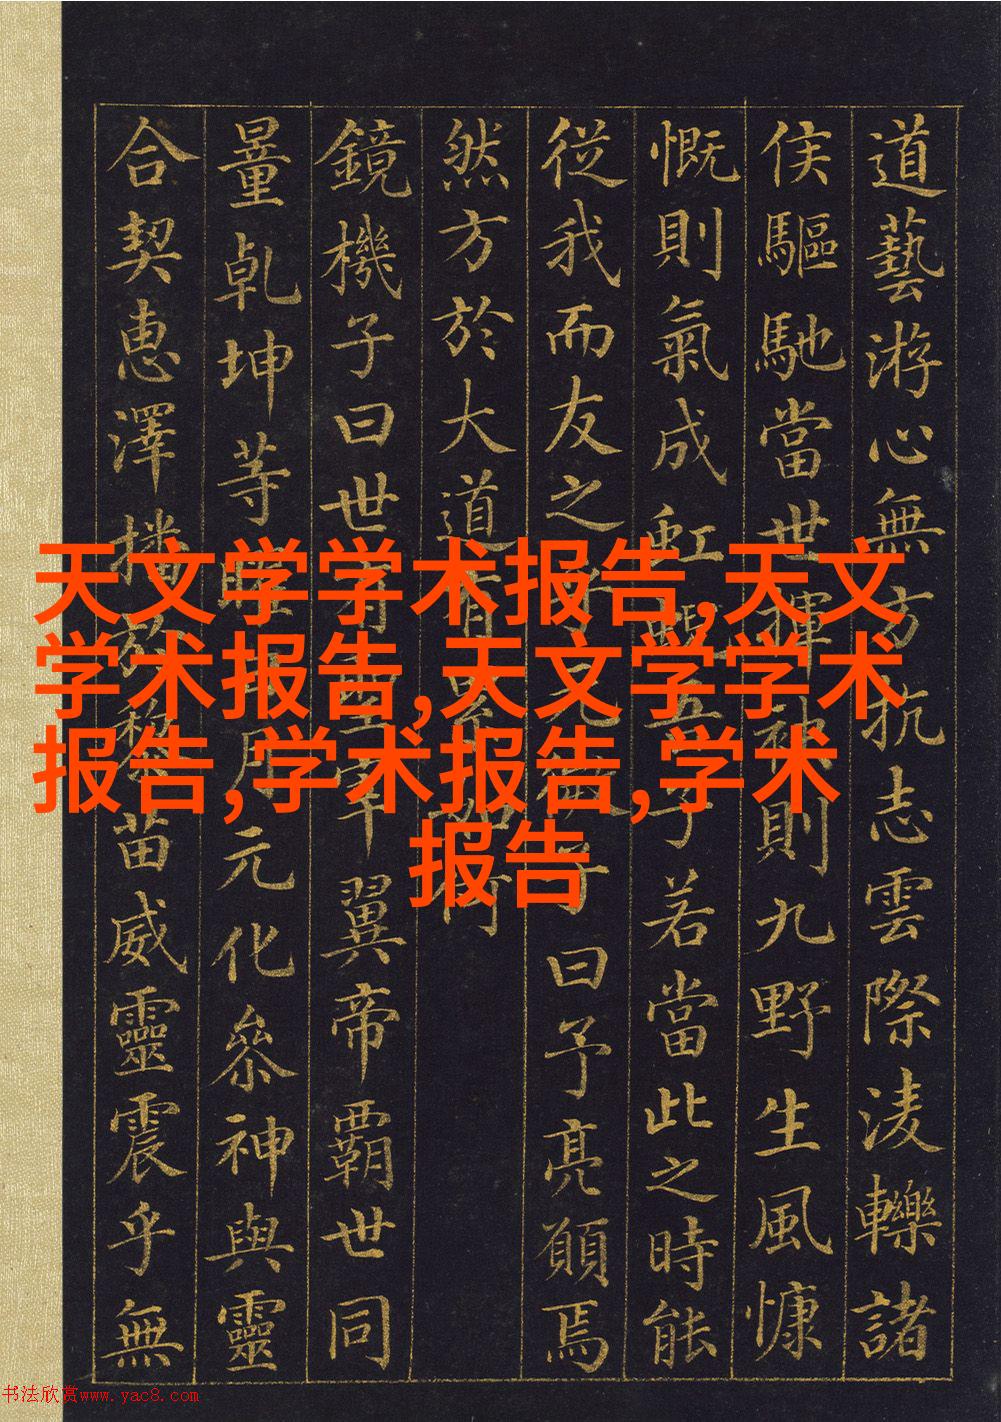 道藝游心無方抗志雲際淩轢諸
侯驅馳當世揮袂則九野生風慷
慨則氣成虹蜺吾子若當此之時能
從我而友之乎玄微子曰予亮願焉
然方於大道有累如何
鏡機子曰世有聖宰翼帝霸世同
量乾坤等曜日月元化叅神與靈
合契惠澤播於黎苗威靈震乎無
天文学学术报告,天文
学术报告,天文学学术
报告,学术报告,学术
报告
书法欣赏www.yac8.com